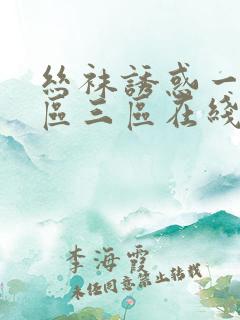 絲袜誘惑一
區三區在綫
李海霞
未经同意禁止转载